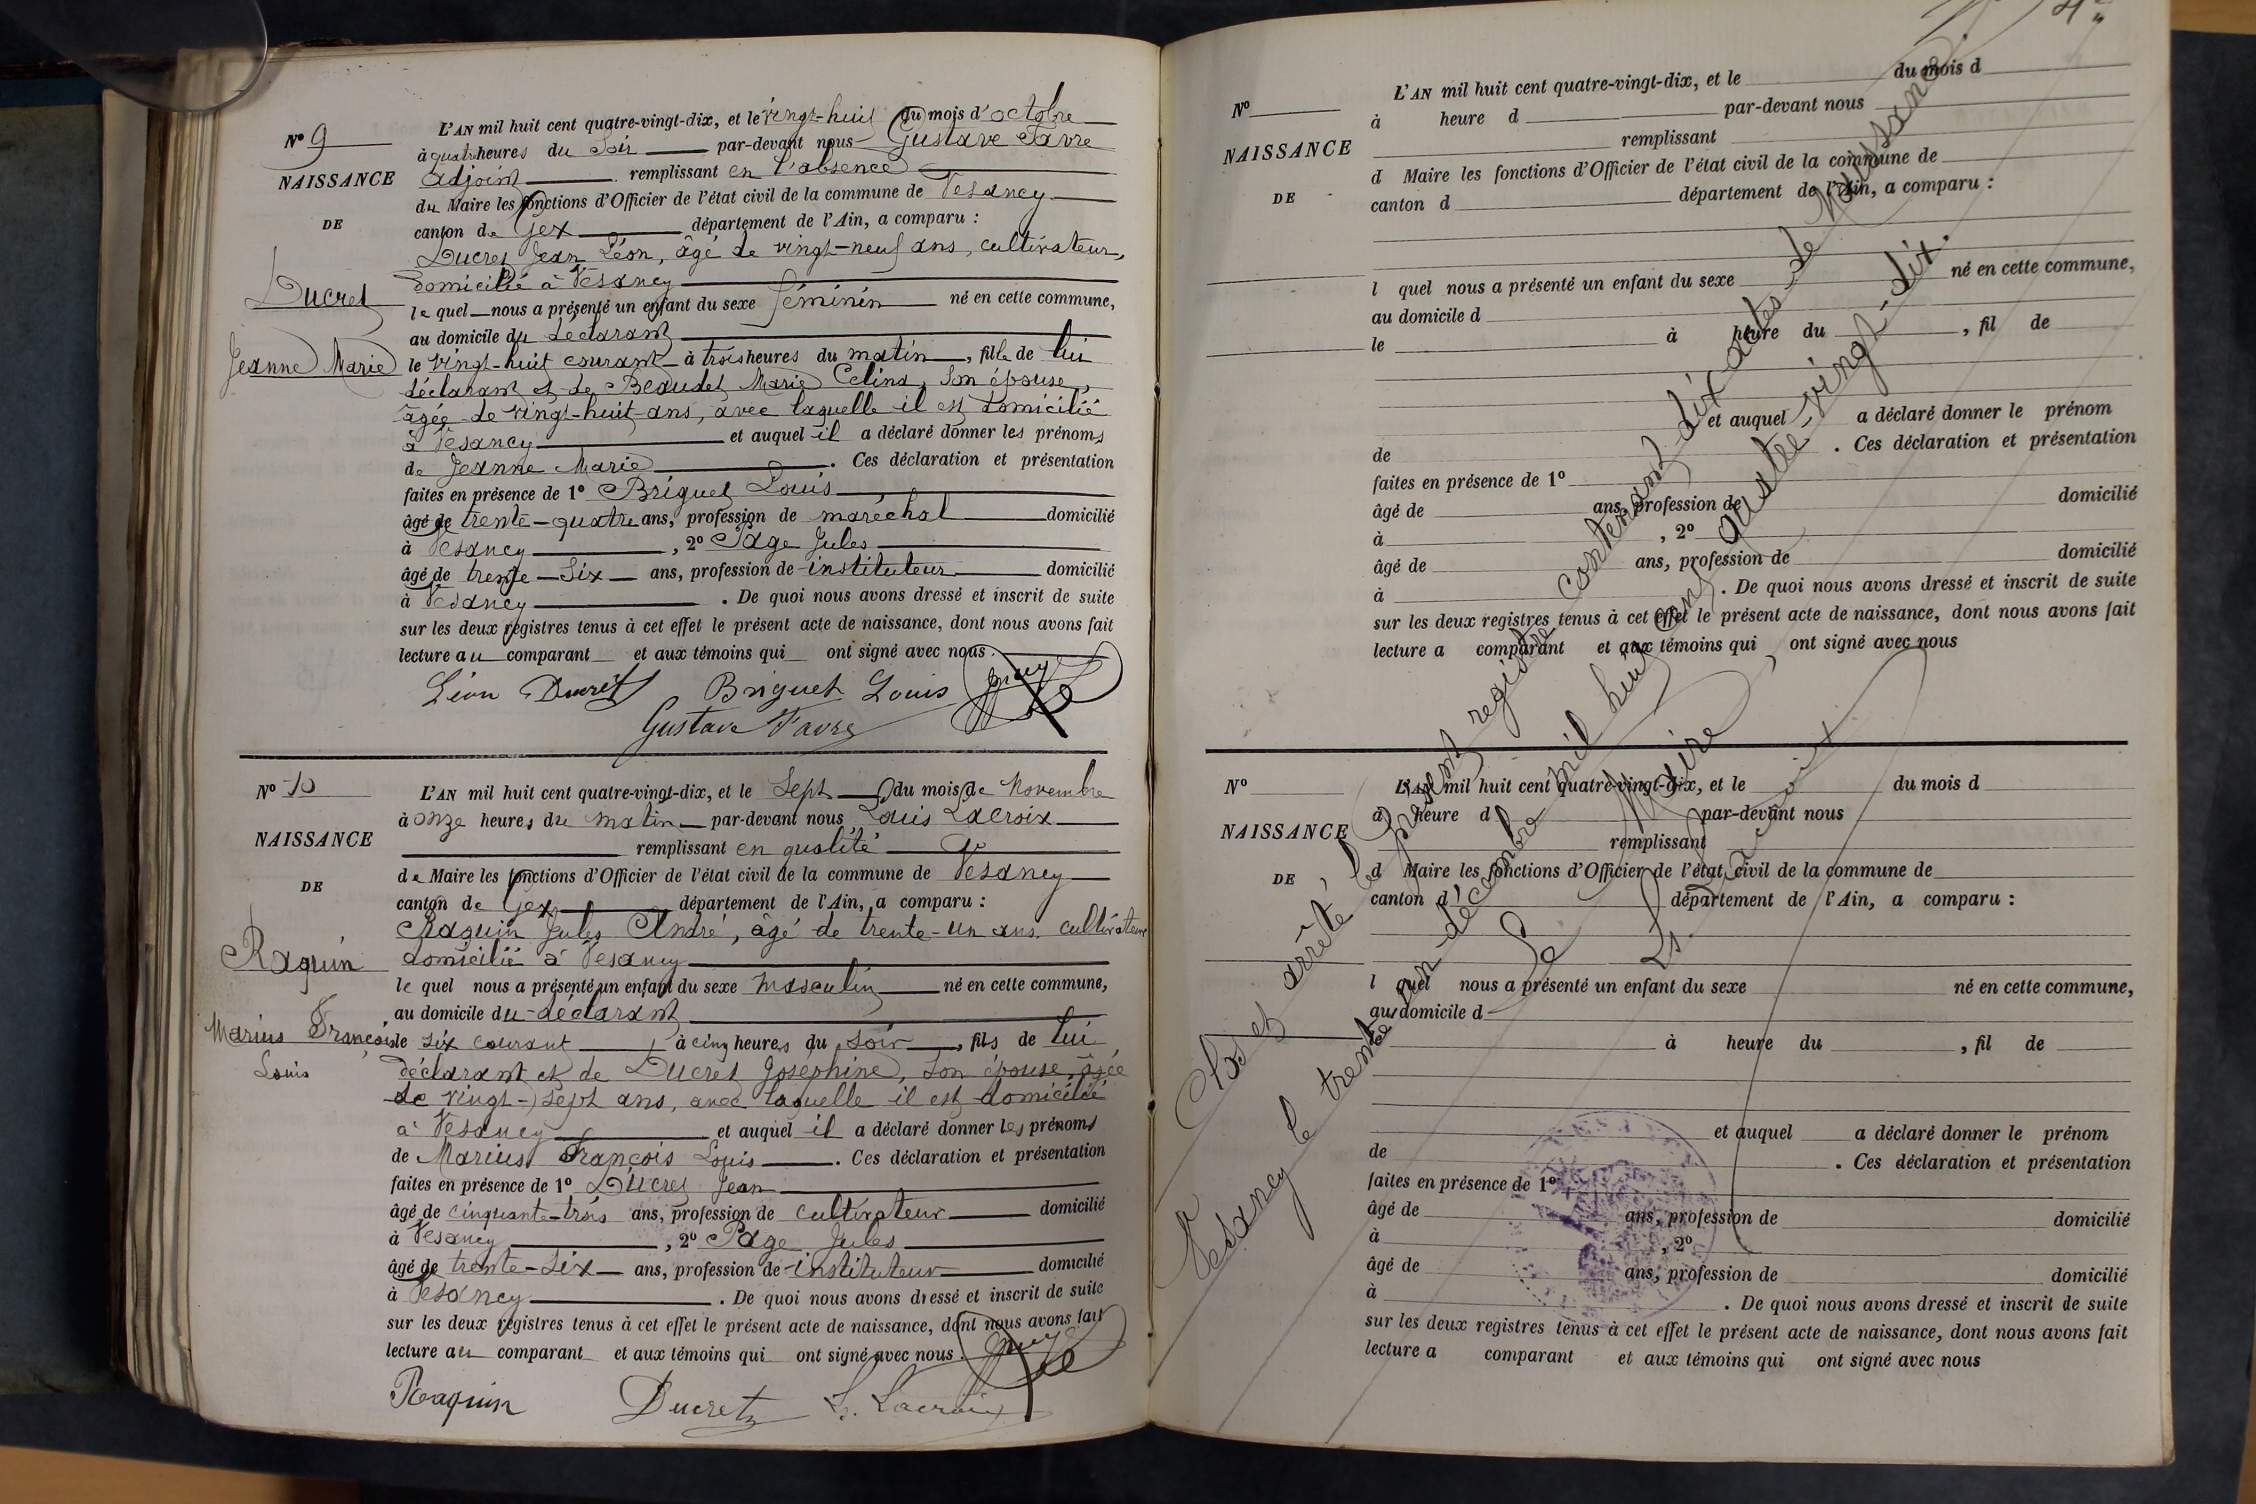 N° 9
NAISSANCE
DE
Ducret
Jeanne Marie
L'AN mil huit cent quatre-vingt-dix, et le vingt-huit du mois d'octobre
à quatre heures du soir par-devant nous Gustave Favre
adjoint remplissant en l'absence
du Maire les fonctions d'Officier de l'état civil de la commune de Vesancy
canton de Gex département de l'Ain, a comparu :
Ducret Jean Léon, âgé de vingt-neuf ans, cultivateur,
domicilié à Vesancy
le quel nous a présenté un enfant du sexe féminin né en cette commune,
au domicile du déclarant
le vingt-huit courant à trois heures du matin, fille de lui
déclarant et de Beaudet Marie Celina, son épouse,
âgée de vingt-huit ans, avec laquelle il est domicilié
à Vesancy et auquel il a déclaré donner les prénoms
de Jeanne Marie. Ces déclaration et présentation
faites en présence de 1° Briguet Louis
âgé de trente-quatre ans, profession de maréchal domicilié
à Vesancy, 2° Page Jules
âgé de trente-six ans, profession de instituteur domicilié
à Vesancy. De quoi nous avons dressé et inscrit de suite
sur les deux registres tenus à cet effet le présent acte de naissance, dont nous avons fait
lecture au comparant et aux témoins qui ont signé avec nous.
Léon Ducret Briguet Louis
Gustave Favre
N° 10
NAISSANCE
DE
Raquin
Marius François
Louis
L'AN mil huit cent quatre-vingt-dix, et le sept du mois de Novembre
à onze heures du matin par-devant nous Louis Lacroix
remplissant en qualité
de Maire les fonctions d'Officier de l'état civil de la commune de Vesancy
canton de Gex département de l'Ain, a comparu :
Raquin Jules André, âgé de trente-un ans, cultivateur
domicilié à Vesancy
le quel nous a présenté un enfant du sexe masculin né en cette commune,
au domicile du déclarant
le six courant, à cinq heures du soir, fils de lui
déclarant et de Ducret Joséphine, son épouse, âgée
de vingt-sept ans, avec laquelle il est domicilié
à Vesancy et auquel il a déclaré donner les prénoms
de Marius François Louis. Ces déclaration et présentation
faites en présence de 1° Ducret Jean
âgé de cinquante-trois ans, profession de cultivateur domicilié
à Vesancy, 2° Page Jules
âgé de trente-six ans, profession de instituteur domicilié
à Vesancy. De quoi nous avons dressé et inscrit de suite
sur les deux registres tenus à cet effet le présent acte de naissance, dont nous avons fait
lecture au comparant et aux témoins qui ont signé avec nous.
Raquin Ducret L. Lacroix
N°
NAISSANCE
DE
L'AN mil huit cent quatre-vingt-dix, et le du mois d
à heure d par-devant nous
remplissant
d Maire les fonctions d'Officier de l'état civil de la commune de
canton d département de l'Ain, a comparu :
l quel nous a présenté un enfant du sexe né en cette commune,
au domicile d
le à heure du , fil de
et auquel a déclaré donner le prénom
de . Ces déclaration et présentation
faites en présence de 1°
âgé de ans, profession de domicilié
à , 2°
âgé de ans, profession de domicilié
à . De quoi nous avons dressé et inscrit de suite
sur les deux registres tenus à cet effet le présent acte de naissance, dont nous avons fait
lecture a comparant et aux témoins qui ont signé avec nous
N°
NAISSANCE
DE
L'AN mil huit cent quatre-vingt-dix, et le du mois d
à heure d par-devant nous
remplissant
d Maire les fonctions d'Officier de l'état civil de la commune de
canton d département de l'Ain, a comparu :
l quel nous a présenté un enfant du sexe né en cette commune,
au domicile d
le à heure du , fil de
et auquel a déclaré donner le prénom
de . Ces déclaration et présentation
faites en présence de 1°
âgé de ans, profession de domicilié
à , 2°
âgé de ans, profession de domicilié
à . De quoi nous avons dressé et inscrit de suite
sur les deux registres tenus à cet effet le présent acte de naissance, dont nous avons fait
lecture a comparant et aux témoins qui ont signé avec nous
Clos et arrêté le présent registre contenant dix actes de naissance.
Vesancy le trente-un décembre mil huit cent quatre-vingt-dix.
Le Maire
L. Lacroix